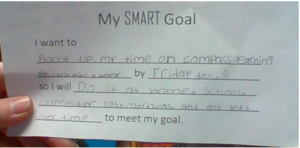 My SMART Goal
I want to
Boost up my time on compass learning
by Friday Dec, 8
so I will Do it at home, school
computer lab, mornings and any
time to meet my goal.